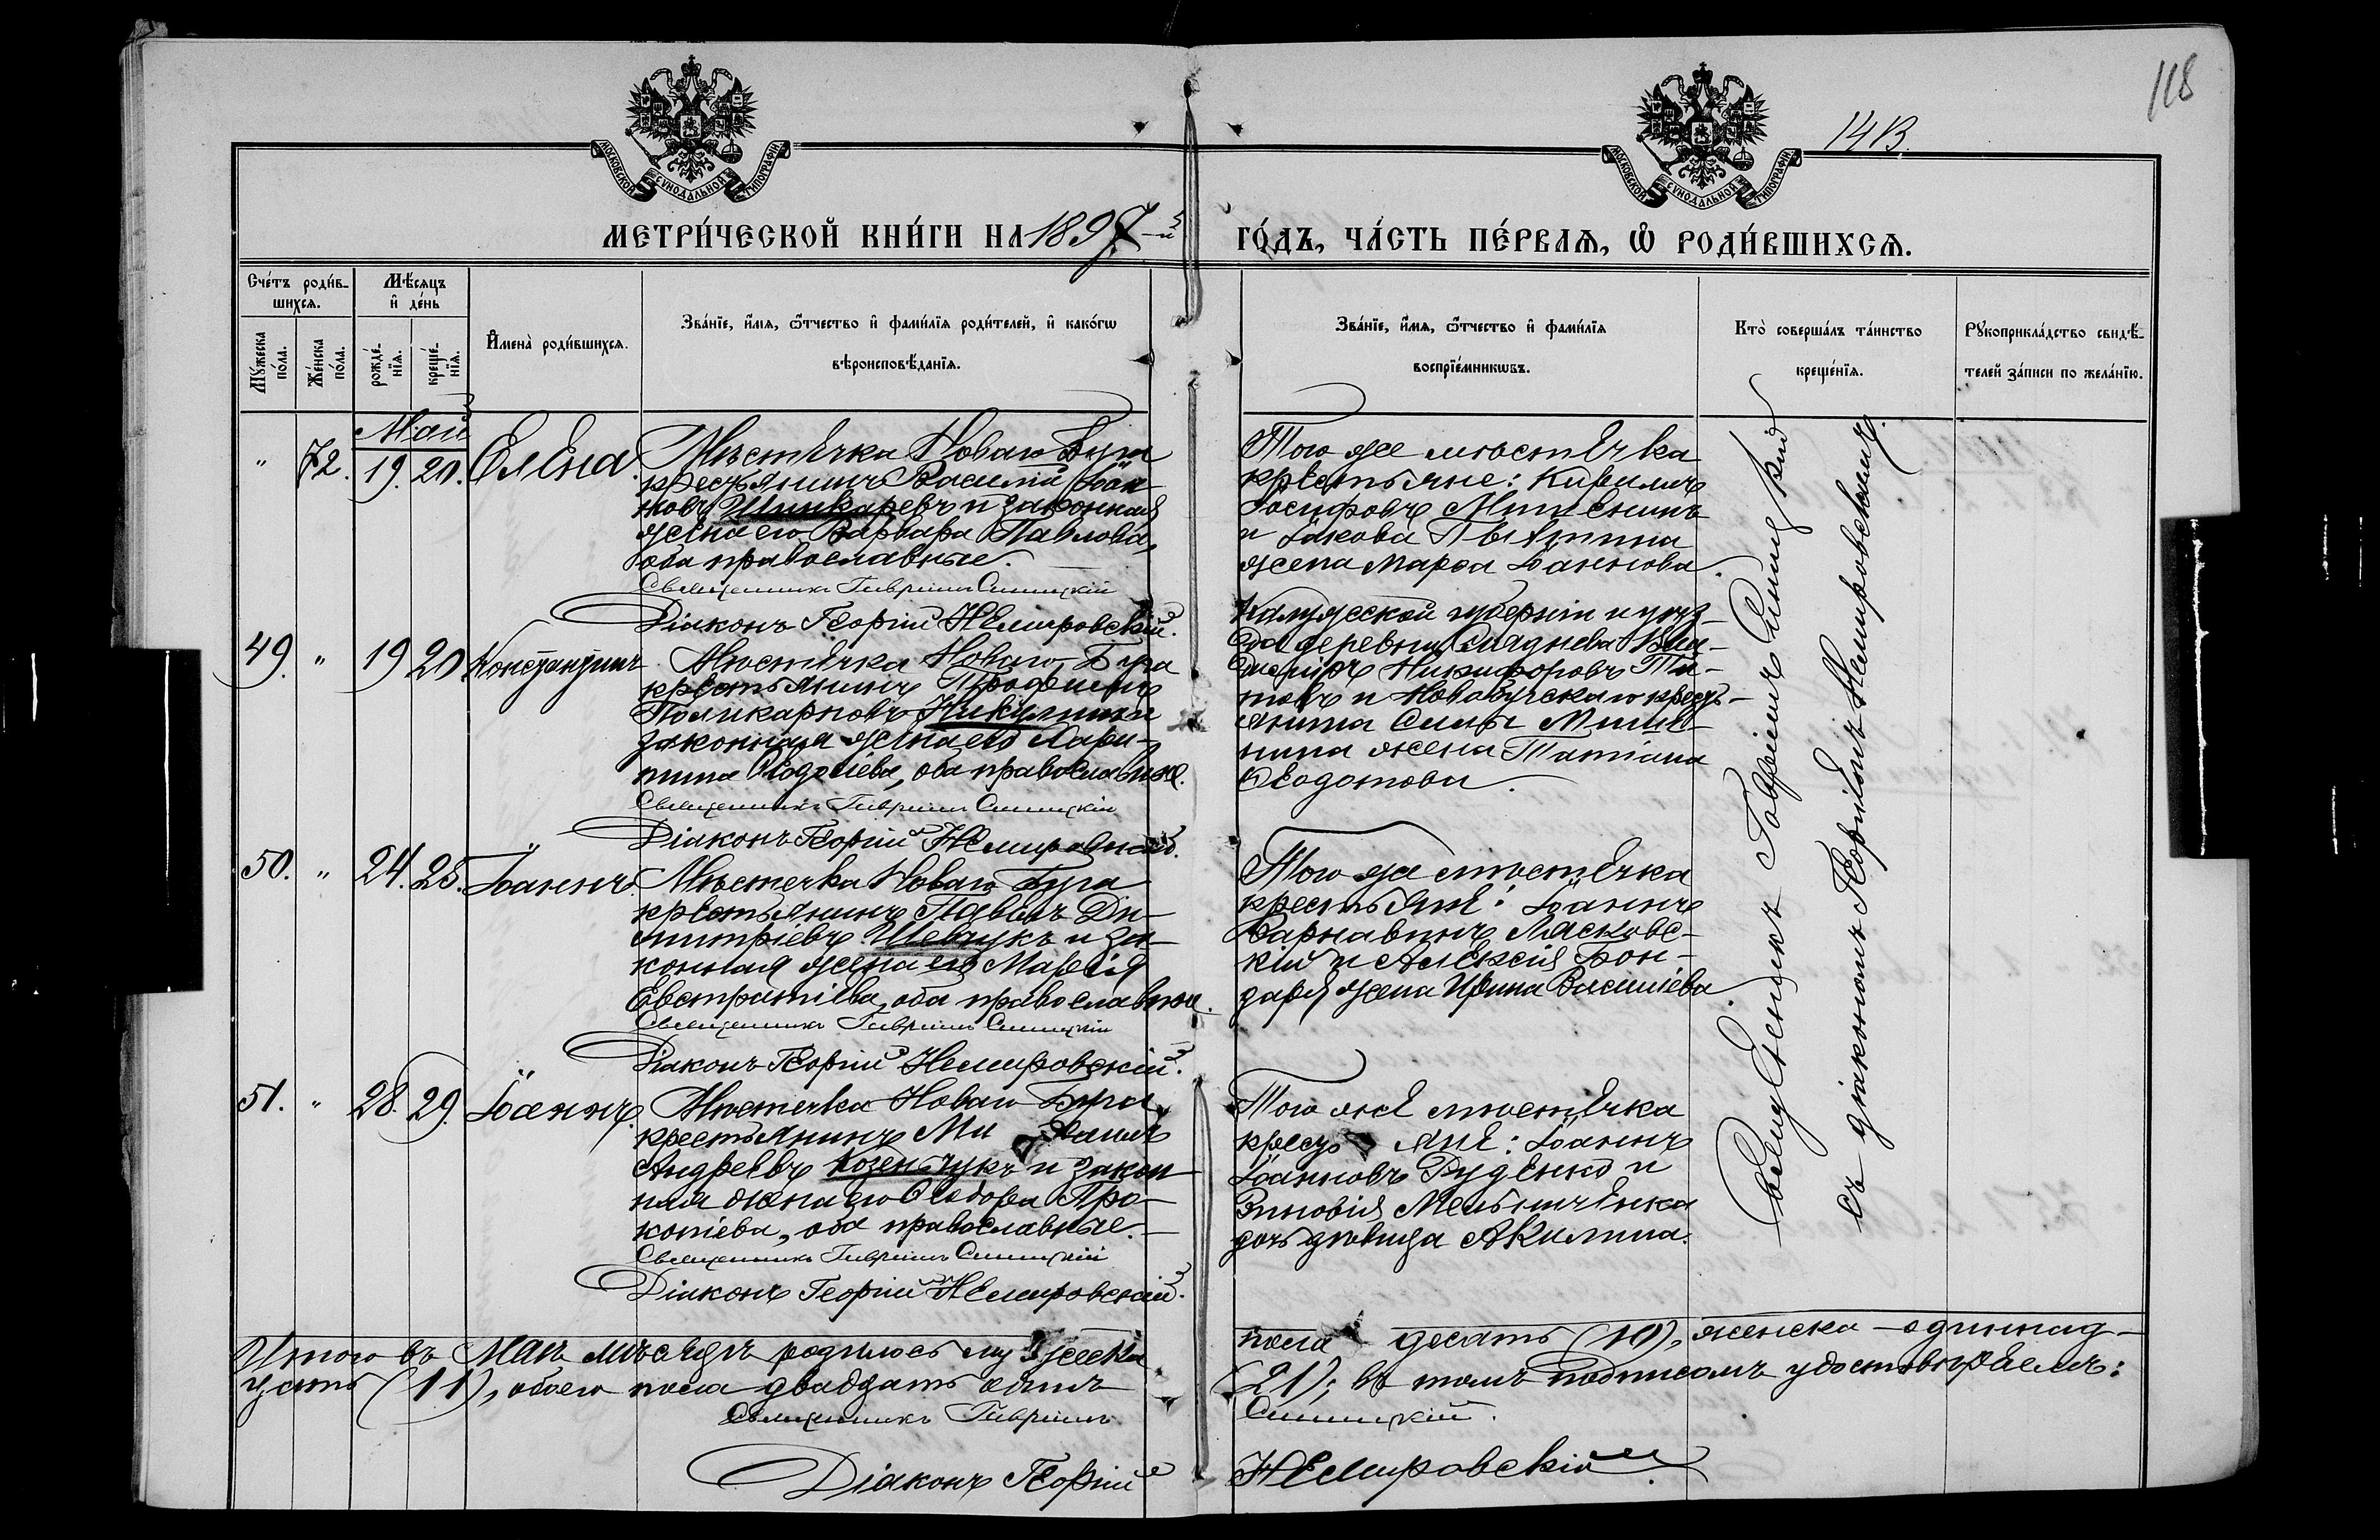 118
14 В.
МОСКОВСКОЙ СѴНОДАЛЬНОЙ ТИПОГРАФІИ
МОСКОВСКОЙ СѴНОДАЛЬНОЙ ТИПОГРАФІИ
МЕТРИ́ЧЕСКОЙ КНИ́ГИ НА 1897-й ГО́ДЪ, ЧА́СТЬ ПЕ́РВАЯ, Ѡ РОДИ́ВШИХСЯ.
Сче́тъ роди́в-
шихся.
Му́жеска по́ла.
Же́нска по́ла.
Мѣ́сяцъ
и де́нь
рожде́-
нїя.
креще́-
нїя.
Имена̀ роди́вшихся.
Зва́нїе, и́мя, ѻ́тчество и фами́лїя роди́телей, и како́гѡ
вѣроисповѣ́данїя.
Зва́нїе, и́мя, ѻ́тчество и фами́лїя
воспрїе́мникѡвъ.
Кто̀ соверша́лъ та́инство
креще́нїя.
Рꙋкоприкла́дство свидѣ́-
телей за́писи по жела́нїю.
Май
" 72. 19. 20. Елена.
Мѣстечка Новаго Буга
крестьянинъ Василій Іоан-
новъ Шинкаревъ и законная
жена его Варвара Павлова,
оба православные.
Священникъ Гавріилъ Синицкій
Діаконъ Георгій Немировскій.
Того же мѣстечка
крестьяне: Кириллъ
Іосифовъ Мишенинъ
и Іакова
жена Марфа Іоаннова.
49. " 19 20 Константинъ
Мѣстечка Новаго Буга
крестьянинъ Трофимъ
Поликарповъ Никулинъ и
законная жена его Хари-
тина Ѳадѣева, оба православные.
Священникъ Гавріилъ Синицкій
Діаконъ Георгій Немировскій.
Калужской губерніи и уѣз-
да деревни
Никифоровъ Ти-
товъ и Новобугскаго кресть-
янина Симы Мише-
нина жена Татіана
Ѳеодотова.
50. " 24. 25. Іоаннъ.
Мѣстечка Новаго Буга
крестьянинъ Павелъ Ди-
митріевъ Шевчукъ и за-
конная жена его Марѳія
Евстратіева, оба православные.
Священникъ Гавріилъ Синицкій
Діаконъ Георгій Немировскій.
Того же мѣстечка
крестьяне: Іоаннъ
Варнавинъ Лясковс-
кій и Алексія Бон-
даря жена Ирина Василіева.
51. " 28. 29. Іоаннъ.
Мѣстечка Новаго Буга
крестьянинъ
Андреевъ Козенчукъ и закон-
ная жена его Ѳеодора Про-
копіева, оба православные.
Священникъ Гавріилъ Синицкій
Діаконъ Георгій Немировскій.
Того же мѣстечка
крестьяне: Іоаннъ
Іоанновъ Руденко и
Зиновія Мельниченка
дочь дѣвица Акилина.
Священникъ Гавріилъ Синицкій
съ діакономъ Георгіемъ Немировскимъ.
Итого въ Маѣ мѣсяцѣ родилось мужеска пола десять (10), женска – одиннад-
цать (11), обоего пола двадцать одинъ (21); въ томъ подписомъ удостовѣряемъ:
Священникъ Гавріилъ Синицкій.
Діаконъ Георгій Немировскій.